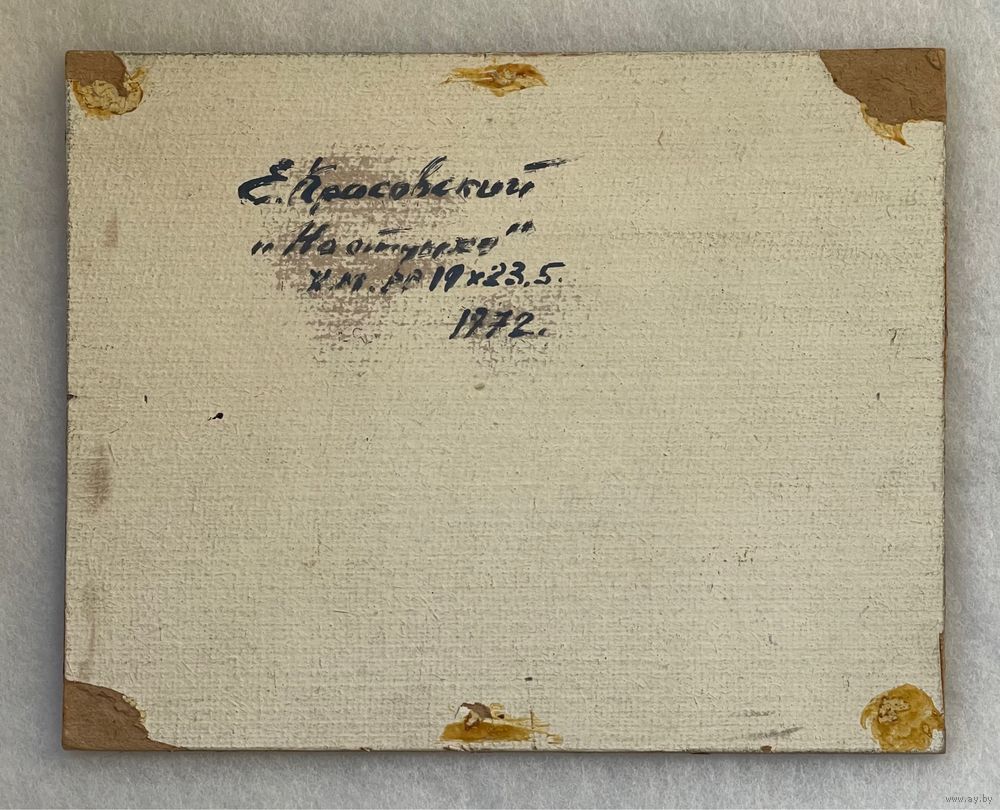 Е. Красовский
„На отдыхе"
Х.М. рр 19х23,5.
1972.
www.ay.by